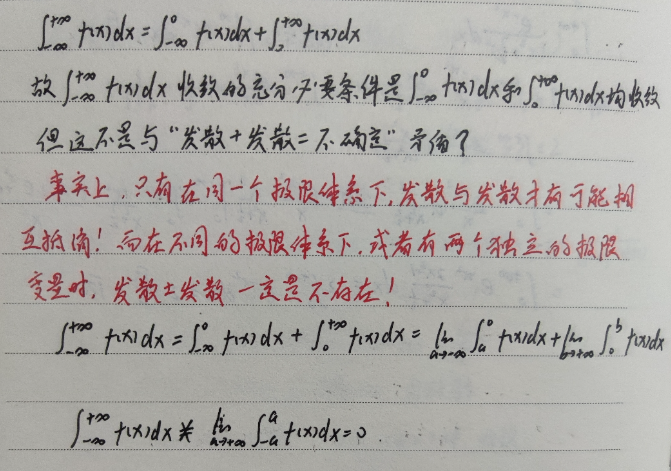 ∫_{-∞}^{+∞} f(x)dx = ∫_{-∞}^{0} f(x)dx + ∫_{0}^{+∞} f(x)dx
故 ∫_{-∞}^{+∞} f(x)dx 收敛的充分必要条件是 ∫_{-∞}^{0} f(x)dx 和 ∫_{0}^{+∞} f(x)dx 均收敛
但这不是与“发散+发散=不确定”矛盾了
事实上,只有在同一个极限体系下,发散与发散才有可能相
互抵消!而在不同的极限体系下,或者有两个独立的极限
变量时,发散±发散一定是不存在!
∫_{-∞}^{+∞} f(x)dx = ∫_{-∞}^{0} f(x)dx + ∫_{0}^{+∞} f(x)dx = lim_{a→-∞} ∫_{a}^{0} f(x)dx + lim_{b→+∞} ∫_{0}^{b} f(x)dx
∫_{-∞}^{+∞} f(x)dx ≠ lim_{a→+∞} ∫_{-a}^{a} f(x)dx = 0.